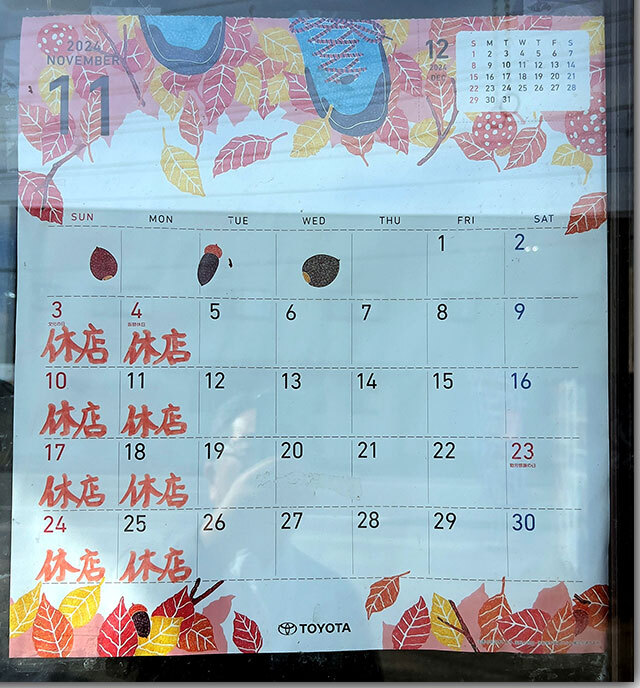 2024
NOVEMBER
11
12
2024
DEC
S M T W T F S
1 2 3 4 5 6 7
8 9 10 11 12 13 14
15 16 17 18 19 20 21
22 23 24 25 26 27 28
29 30 31
SUN MON TUE WED THU FRI SAT
1 2
3 4 5 6 7 8 9
文化の日 振替休日
休店 休店
10 11 12 13 14 15 16
休店 休店
17 18 19 20 21 22 23
勤労感謝の日
休店 休店
24 25 26 27 28 29 30
休店 休店
TOYOTA